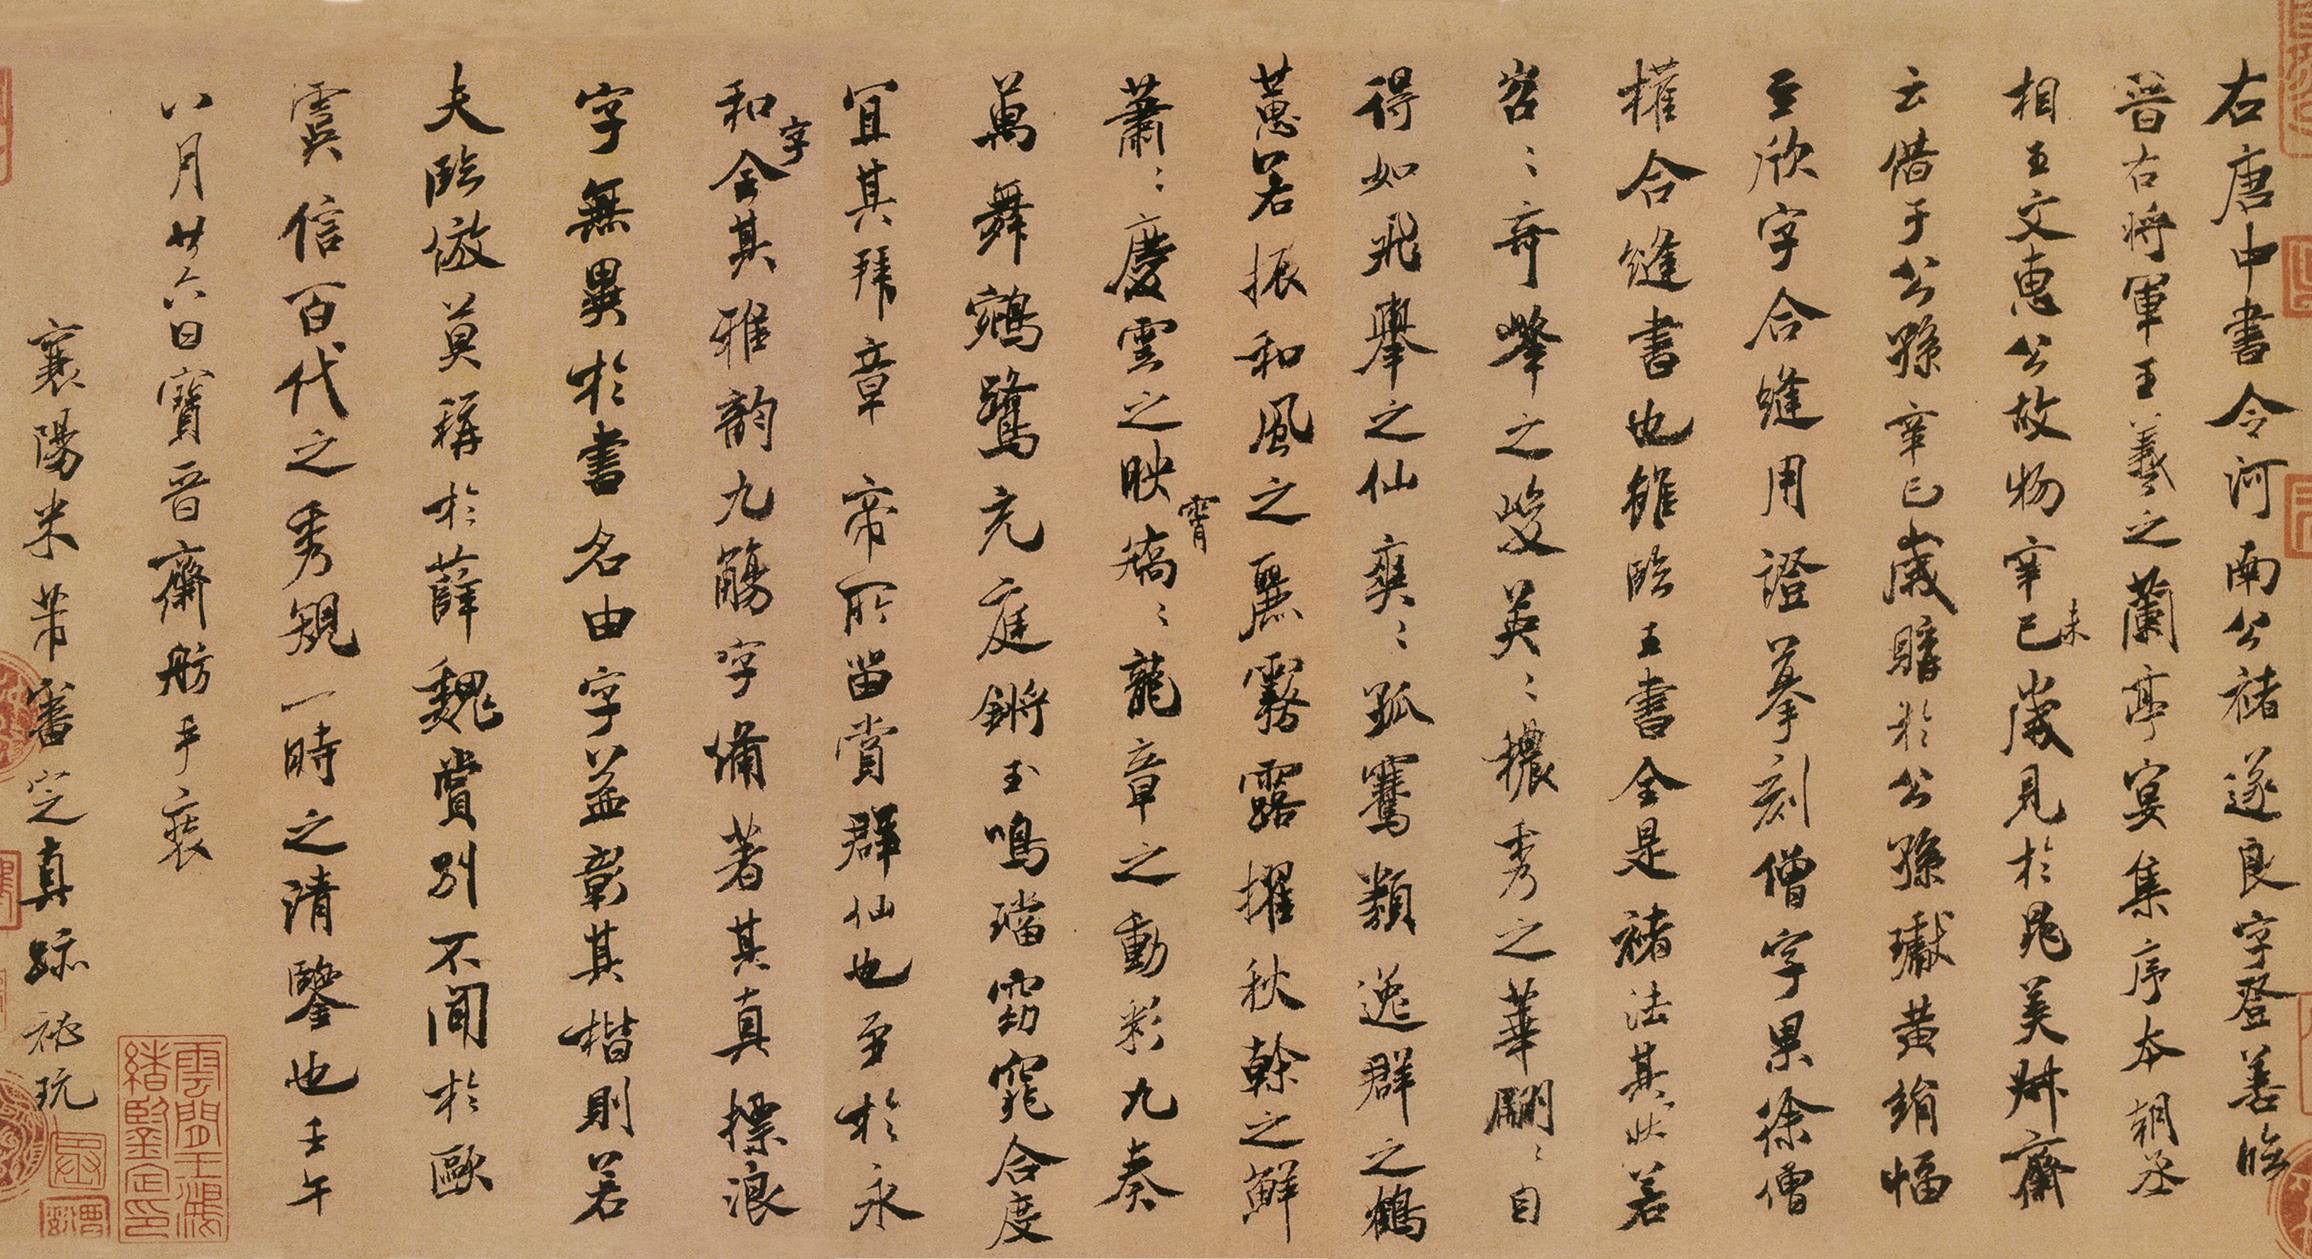 右唐中書令河南公褚遂良字登善臨
晉右將軍王羲之蘭亭宴集序本朝丞
相王文惠公故物辛巳未歲見於晁美叔齋
云借于公孫辛巳歲購於公孫瓛黃絹幅
至欣字合縫用證摹刻僧字果徐僧
權合縫書也雖臨王書全是褚法其狀若
岩〻奇峰之峻英〻穠秀之華翩〻自
得如飛舉之仙爽〻孤騫類逸群之鶴
蕙若振和風之麗霧露擢秋幹之鮮
蕭〻慶雲之映霄矯〻龍章之動彩九奏
萬舞鵷鷺充庭鏘玉鳴璫窈窕合度
宜其拜章帝所留賞群仙也至於永
和字全其雅韻九觴字備著其真標浪
字無異於書名由字益彰其楷則若
夫臨倣莫稱於薛魏賞別不聞於歐
虞信百代之秀規一時之清鑒也壬午
八月廿六日寶晉齋舫手裝
襄陽米芾審定真跡祕玩